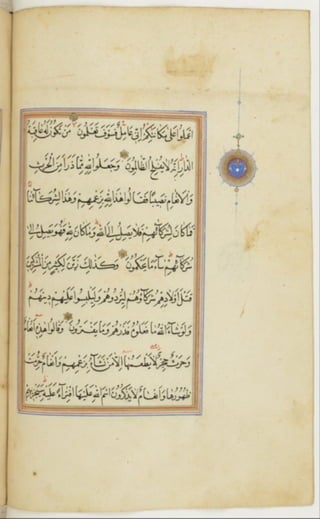 اعْمَلُوا عَلَى مَكَانَتِكُمْ اِنِّي عَامِلٌ فَسَوْفَ تَعْلَمُونَ مَنْ تَكُونُ لَهُ عَاقِبَةُ
الدَّارِ اِنَّهُ لَا يُفْلِحُ الظَّالِمُونَ وَجَعَلُوا لِلّٰهِ مِمَّا ذَرَاَ مِنَ الْحَرْثِ
وَالْاَنْعَامِ نَصِيبًا فَقَالُوا هَذَا لِلّٰهِ بِزَعْمِهِمْ وَهَذَا لِشُرَكَآئِنَا
فَمَا كَانَ لِشُرَكَآئِهِمْ فَلَا يَصِلُ اِلَى اللّٰهِ وَمَا كَانَ لِلّٰهِ فَهُوَ يَصِلُ اِلَى
شُرَكَآئِهِمْ سَآءَ مَا يَحْكُمُونَ وَكَذَلِكَ زَيَّنَ لِكَثِيرٍ مِنَ الْمُشْرِكِينَ
قَتْلَ اَوْلَادِهِمْ شُرَكَآؤُهُمْ لِيُرْدُوهُمْ وَلِيَلْبِسُوا عَلَيْهِمْ دِينَهُمْ
وَلَوْ شَآءَ اللّٰهُ مَا فَعَلُوهُ فَذَرْهُمْ وَمَا يَفْتَرُونَ وَقَالُوا هَذِهِ اَنْعَامٌ
وَحَرْثٌ حِجْرٌ لَا يَطْعَمُهَا اِلَّا مَنْ نَشَآءُ بِزَعْمِهِمْ وَاَنْعَامٌ حُرِّمَتْ
ظُهُورُهَا وَاَنْعَامٌ لَا يَذْكُرُونَ اسْمَ اللّٰهِ عَلَيْهَا افْتِرَآءً عَلَيْهِ سَيَجْزِيهِمْ